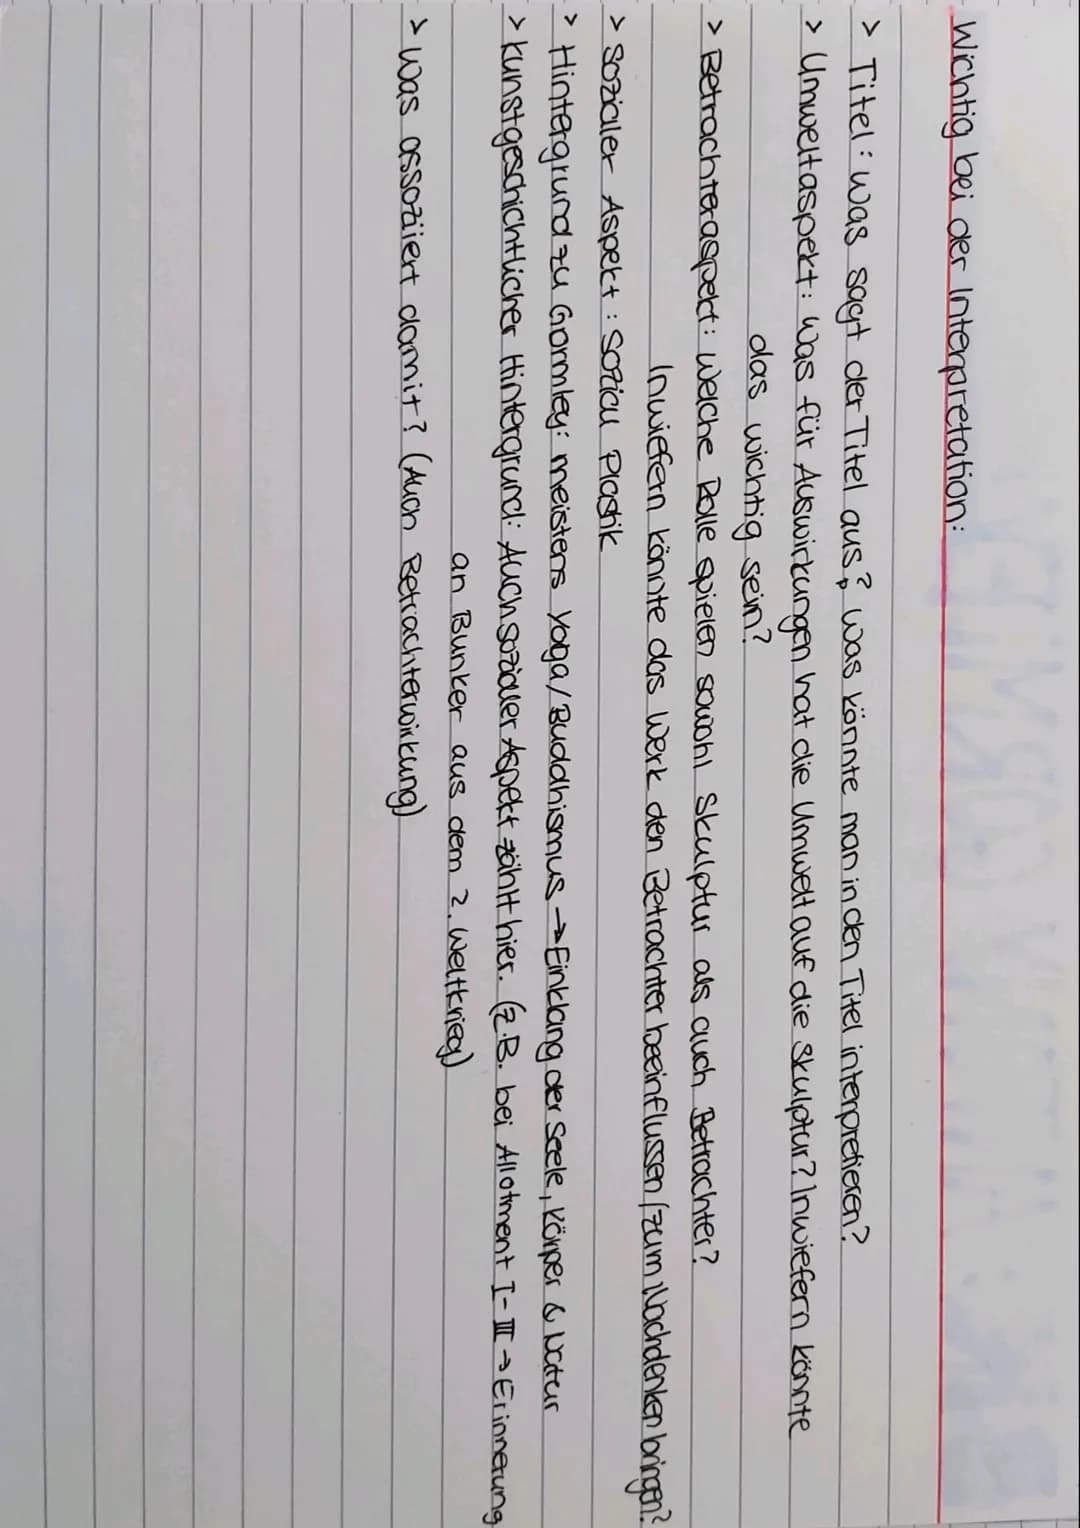 Wichtig bei der Interpretation:
> Titel: Was sagt der Titel aus? Was könnte man in den Titel interpretieren?
> Umweltaspekt: Was für Auswirkungen hat die Umwelt auf die Skulptur? Inwiefern könnte
das wichtig sein?
> Betrachteraspekt: Welche Rolle spielen sowohl Skulptur als auch Betrachter?
Inwiefern könnte das Werk den Betrachter beeinflussen / zum Nachdenken bringen?
> Sozialer Aspekt: Sozial Plastik
> Hintergrund zu Gormley: meistens Yoga/Buddhismus → Einklang der Seele, Körper & Natur
> Kunstgeschichtlicher Hintergrund: Auch sozialer Aspekt zählt hier. (z.B. bei Allotment I-III → Erinnerung
an Bunker aus dem 2. Weltkrieg)
> Was assoziiert damit? (Auch Betrachterwirkung)